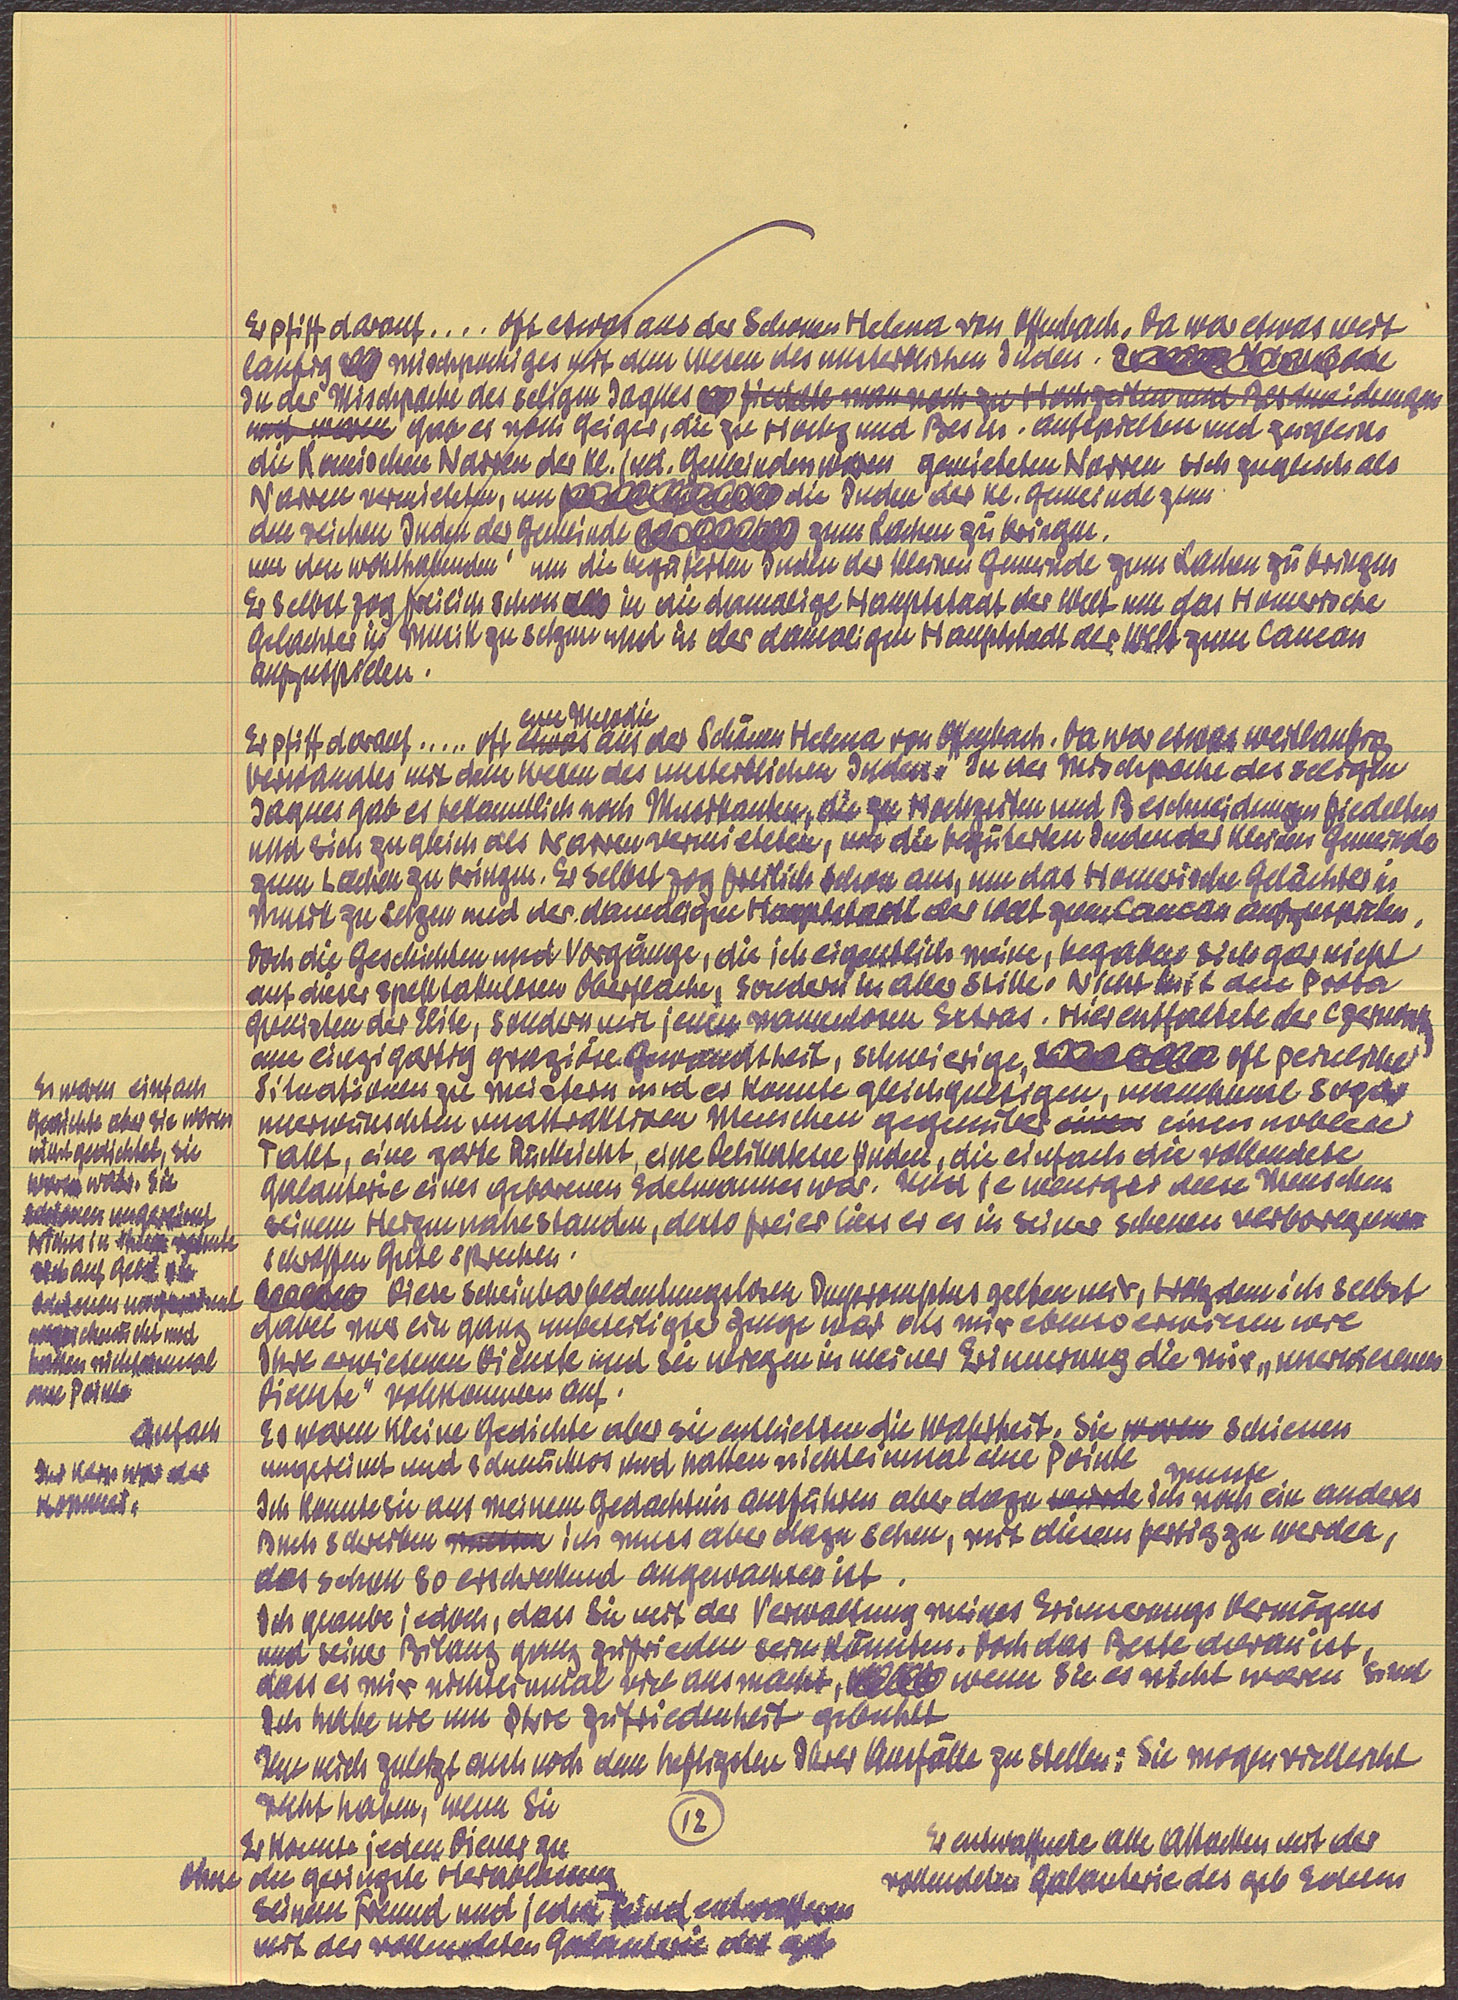 Er pfiff darauf .... oft etwas aus der Schönen Helena von Offenbach. Da war etwas weit
läufig mischpochiges mit dem Wesen des unsterblichen Juden.
In der Mischpoche des seligen Jaques fiedelte man noch zu Hochzeiten und Beschneidungen
und waren gab es noch Geiger, die zu Hochz und Besch. aufspielten und zugleich
die Komischen Narren der kl. jüd. Gemeinden waren gemieteten Narren sich zugleich als
Narren vermieteten, um die Juden der kl. Gemeinde zum
den reichen Juden der Gemeinde zum Lachen zu bringen.
um den wohlhabenden um die begüterten Juden der kleinen Gemeinde zum Lachen zu bringen
Er selbst zog freilich schon in die damalige Hauptstadt der Welt um das Homerische
Gelächter in Musik zu setzen und in der damaligen Hauptstadt der Welt zum Cancan
aufzuspielen.
eine Melodie
Er pfiff darauf ..... oft etwas aus der Schönen Helena von Offenbach. Da war etwas weitläufig
verwandtes mit dem Wesen des unsterblichen Juden. In der Mischpoche des seligen
Jaques gab es bekanntlich noch Musikanten, die zu Hochzeiten und Beschneidungen fiedelten
und sich zugleich als Narren vermieteten, um die begüterten Juden der kleinen Gemeinde
zum Lachen zu bringen. Er selbst zog freilich schon aus, um das Homerische Gelächter in
Musik zu setzen und der damaligen Hauptstadt der Welt zum Cancan aufzuspielen.
Doch die Geschichten und Vorgänge, die ich eigentlich meine, begaben sich gar nicht
auf dieser spektakulösen Oberfläche, sondern in aller Stille. Nicht mit den Prota
gonisten der Elite, sondern mit jenen namenlosen Extras. Hier entfaltete der
eine einzigartig graziöse Gewandtheit, schwierige, oft peinliche
Situationen zu meistern und er konnte gleichgültigen, manchmal sogar
unerwünschten unattraktiven Menschen gegenüber einen einen noblen
Takt, eine zarte Rücksicht, eine Delikatesse finden, die einfach die vollendete
Galanterie eines geborenen Edelmannes war. Und je weniger diese Menschen
seinem Herzen nahe standen, desto freier liess er es in seiner scheuen verborgenen
schroffen Güte sprechen.
Diese scheinbar bedeutungslosen Impromptus gelten mir, trotzdem ich selbst
dabei nur ein ganz unbeteiligter Zeuge war als mir ebenso erwiesen wie
Ihre erwiesenen Dienste und sie wiegen in meiner Erinnerung die mir „unerwiesenen
Dienste" vollkommen auf.
Es waren einfach
Gedichte aber sie waren
nicht gedichtet, sie
waren wahr. Sie
schienen ungereimt
nichts in
sich auf Geld
schienen
schmückt und
hatten nichteinmal
eine Pointe
einfach
Der Kern war der
Es waren kleine Gedichte aber sie enthielten die Wahrheit. Sie waren schienen
ungereimt und schmucklos und hatten nichteinmal eine Pointe
musste
Ich konnte sie aus meinem Gedächtnis anführen aber dazu würde ich noch ein anderes
Buch schreiben ich muss aber dazu sehen, mit diesem fertig zu werden,
das schon so erschreckend angewachsen ist.
Ich glaube jedoch, dass Sie mit der Verwaltung meines Erinnerungs Vermögens
und seiner Bilanz ganz zufrieden sein könnten. Doch das Beste daran ist,
dass es mir nichteinmal viel ausmacht, wenn Sie es nicht waren sind
Ich habe nie um Ihre Zufriedenheit gebuhlt
Um mich zuletzt auch noch dem heftigsten Ihrer Ausfälle zu stellen: Sie mögen vielleicht
recht haben, wenn Sie
12
Er konnte jeden Diener zu
Ohne die geringste Herablassung
seinem Freund und jeden Feind entwaffnen
mit der vollendeten Galanterie des geb
Er entwaffnete alle Attacken mit der
vollendeten Galanterie des geb Edelm